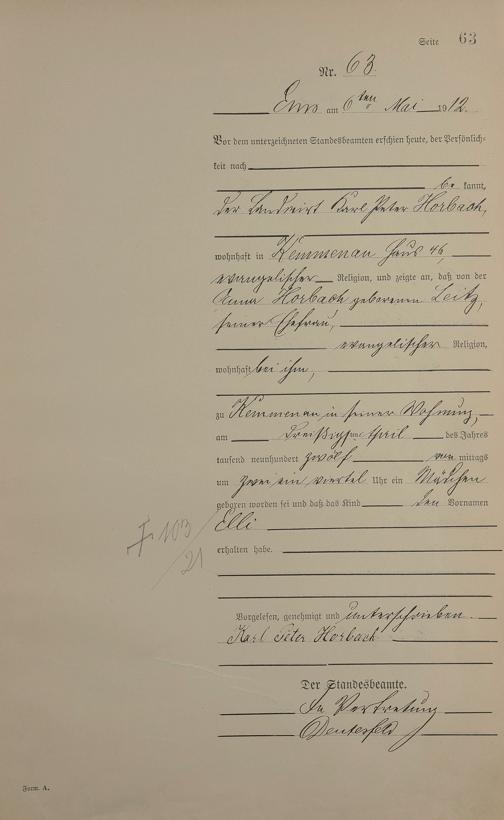 Seite 63
Nr. 63
Ems am 6ten Mai 1912.
Vor dem unterzeichneten Standesbeamten erschien heute, der Persönlich-
keit nach
be kannt,
der Landwirt Karl Peter Horbach,
wohnhaft in Kemmenau Haus 46,
evangelischer Religion, und zeigte an, daß von der
Anna Horbach geborenen Leitz,
seiner Ehefrau,
evangelischer Religion,
wohnhaft bei ihm,
zu Kemmenau in seiner Wohnung,
am dreißigsten April des Jahres
tausend neunhundert zwölf vormittags
um zwei ein viertel Uhr ein Mädchen
geboren worden sei und daß das Kind den Vornamen
Elli
erhalten habe.
103
/21
Vorgelesen, genehmigt und unterschrieben.
Karl Peter Horbach
Der Standesbeamte.
In Vertretung
Form. A.